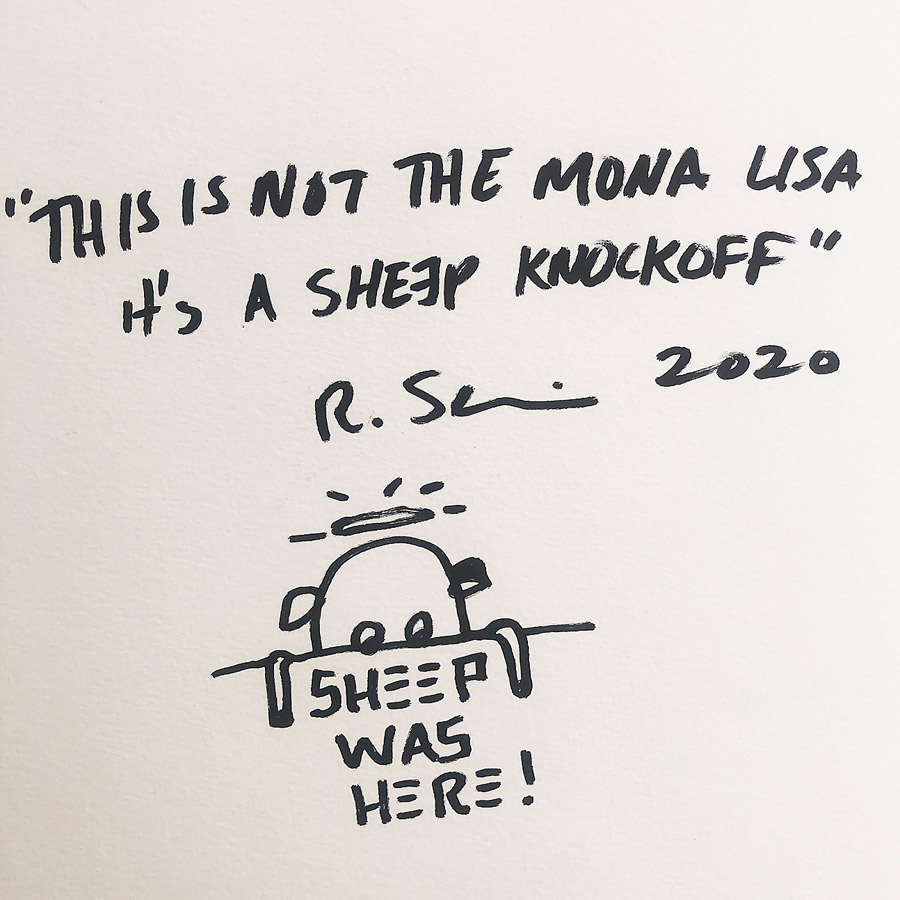 "THIS IS NOT THE MONA LISA
It's A SHEEP KNOCKOFF"
R. 2020
SHEEP
WAS
HERE!